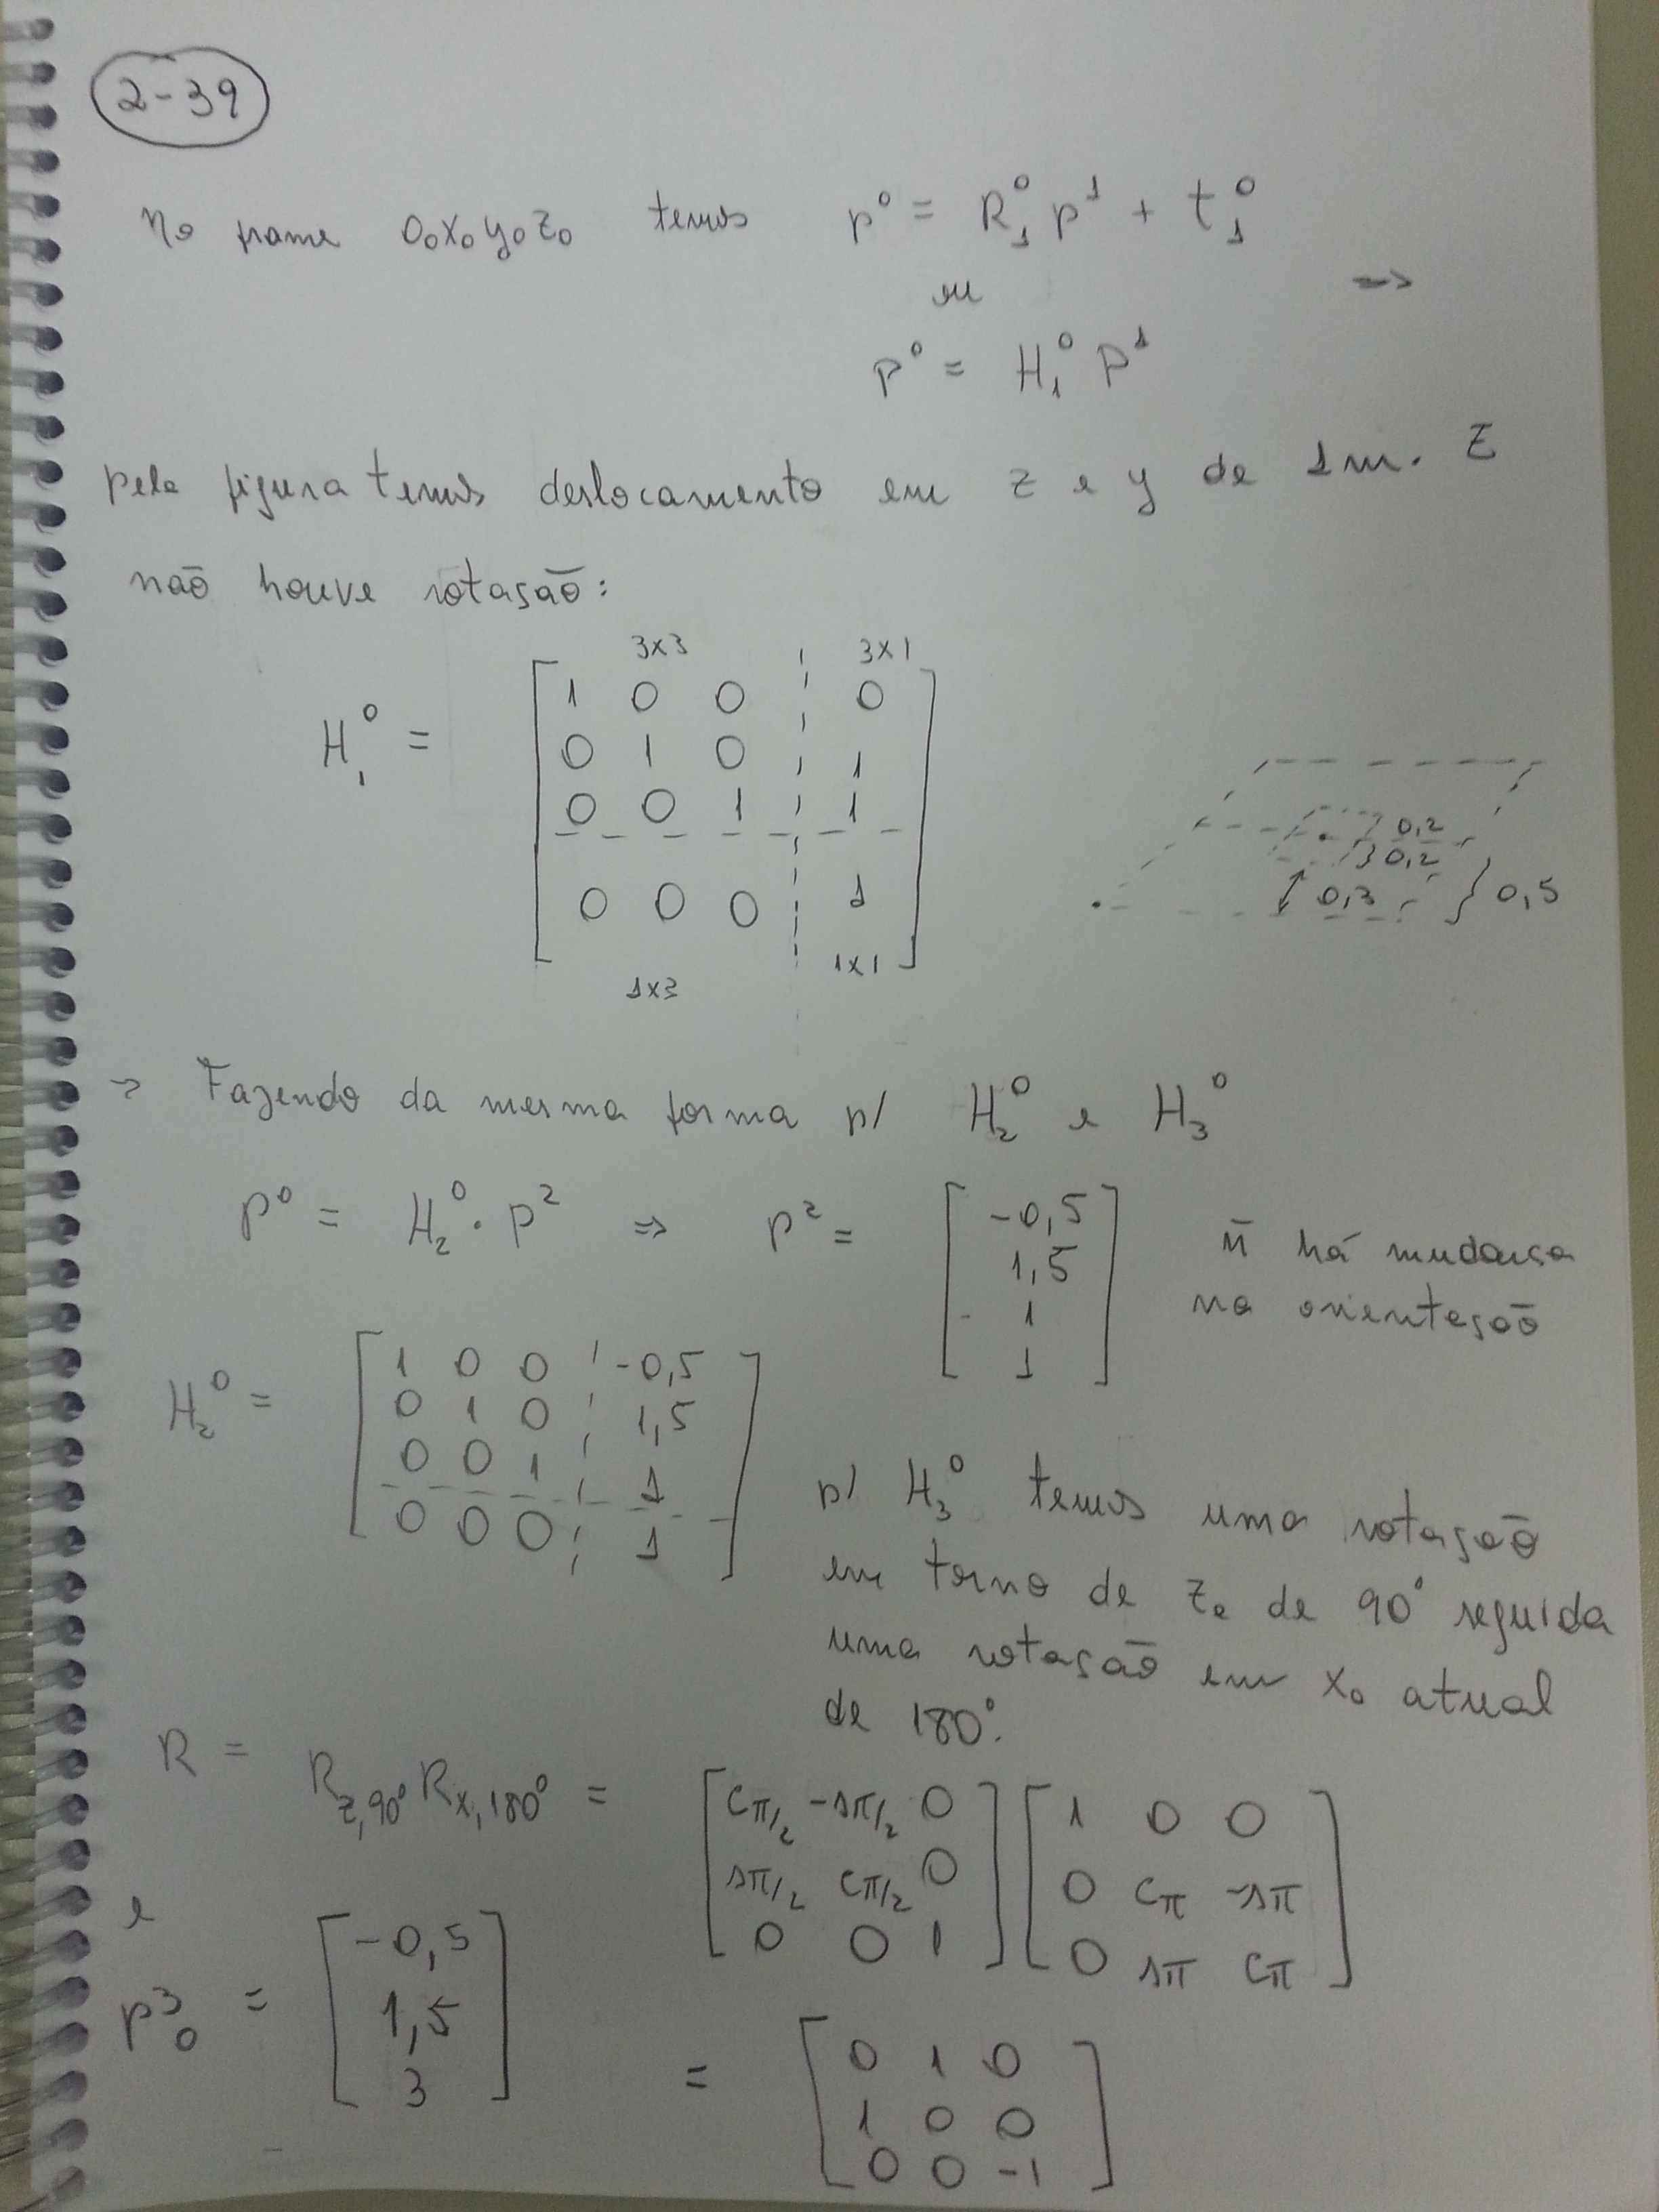 2-39
No frame o₀x₀y₀z₀ temos p⁰ = R₁⁰ p¹ + t₁⁰
ou =>
p⁰ = H₁⁰ P¹
pela figura temos deslocamento em z e y de 1m. E
não houve rotação:
3x3 3x1
H₁⁰ =
1 0 0 0
0 1 0 1
0 0 1 1
0 0 0 1
1x3 1x1
0,2
0,2
0,3 0,5
=> Fazendo da mesma forma p/ H₂⁰ e H₃⁰
p⁰ = H₂⁰ . p² => p² =
-0,5
1,5
1
1
ñ há mudança
na orientação
H₂⁰ =
1 0 0 -0,5
0 1 0 1,5
0 0 1 1
0 0 0 1
p/ H₃⁰ temos uma rotação
em torno de z₀ de 90° seguida
uma rotação em x₀ atual
de 180°.
R = R z,90° R x,180° =
cπ/2 -sπ/2 0
sπ/2 cπ/2 0
0 0 1
1 0 0
0 cπ -sπ
0 sπ cπ
e
p³₀ =
-0,5
1,5
3
=
0 1 0
1 0 0
0 0 -1